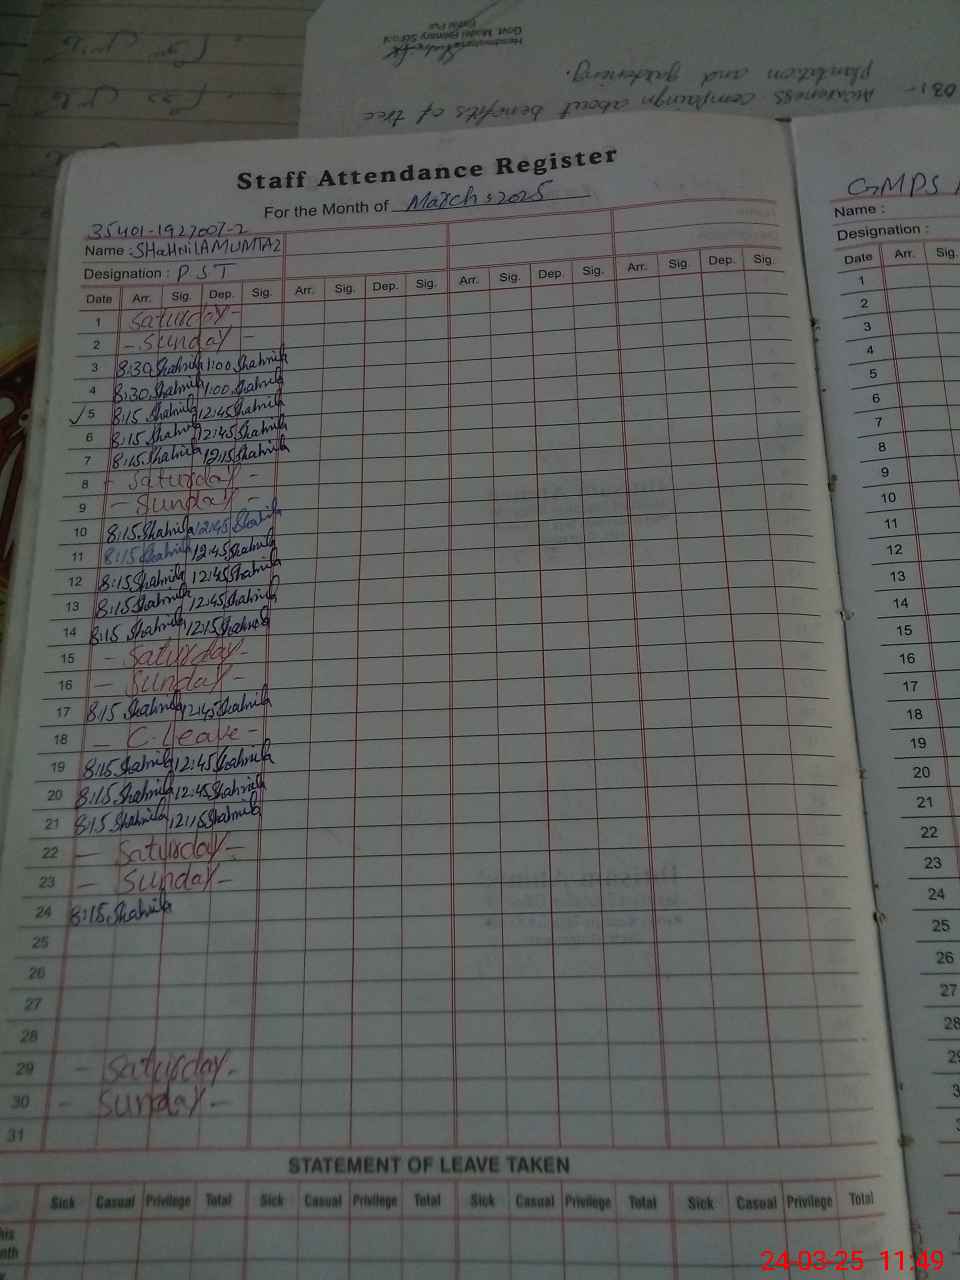 Headmistress
Govt. Model Primary School
03:- Awareness compaingn about benefits of tree
plantation and gardening.
Staff Attendance Register
For the Month of March, 2025
Name : SHaHnilAMUMTAZ
Designation : P S T
Date Arr. Sig. Dep. Sig. Arr. Sig. Dep. Sig. Arr. Sig. Dep. Sig. Arr. Sig. Dep. Sig.
1 Saturday -
2 - Sunday -
3 8:30 Shahnila 1:00 Shahnila
4 8:30 Shahnila 1:00 Shahnila
✓ 5 8:15 Shahnila 12:45 Shahnila
6 8:15 Shahnila 12:45 Shahnila
7 8:15 Shahnila 12:15 Shahnila
8 - Saturday -
9 - Sunday -
10 8:15 Shahnila 12:45 Shahnila
11 8:15 Shahnila 12:45 Shahnila
12 8:15 Shahnila 12:45 Shahnila
13 8:15 Shahnila 12:45 Shahnila
14 8:15 Shahnila 12:15 Shahnila
15 - Saturday -
16 - Sunday -
17 8:15 Shahnila 12:45 Shahnila
18 - C. Leave -
19 8:15 Shahnila 12:45 Shahnila
20 8:15 Shahnila 12:45 Shahnila
21 8:15 Shahnila 12:15 Shahnila
22 - Saturday -
23 - Sunday -
24 8:15 Shahnila
25
26
27
28
29 - Saturday -
30 - Sunday -
31
STATEMENT OF LEAVE TAKEN
Sick Casual Privilege Total Sick Casual Privilege Total Sick Casual Privilege Total Sick Casual Privilege Total
GMPS
Name :
Designation :
Date Arr. Sig.
1
2
3
4
5
6
7
8
9
10
11
12
13
14
15
16
17
18
19
20
21
22
23
24
25
26
27
28
24-03-25 11:49